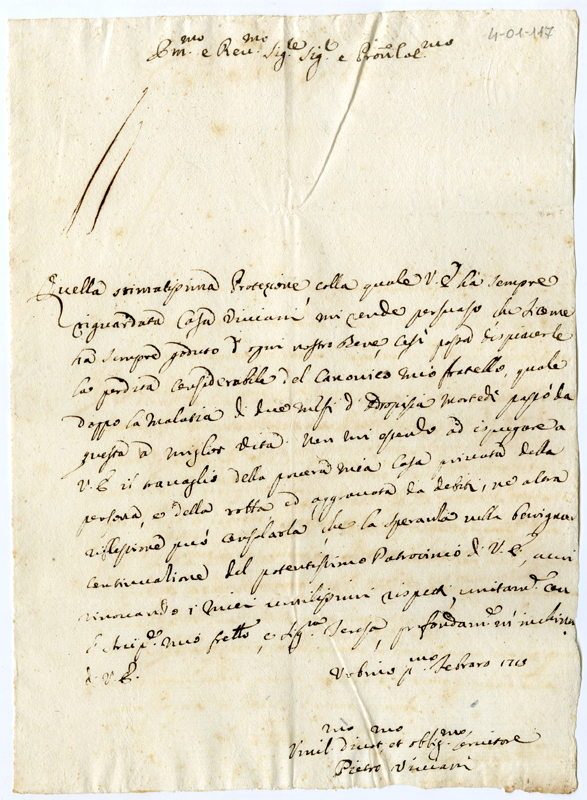 4-01-117
Em.mo e Rev.mo Sig.re Sig.r e Pron Col.mo
Quella stimatissima Protezione colla quale V. E. hà sempre
riguardata Casa Viviani, mi rende persuaso che siccome
hà sempre goduto d'ogni nostro Bene, così possa dispiacerle
la perdita considerabile del Canonico mio fratello, quale
doppo la malatia di due mesi d'Idropisia Martedì passò da
questa a miglior vita. Non mi estendo ad espugare a
V. E. il travaglio della povera mia Casa privata della
persona, e della rotta ed aggravata da debiti, ne altra
riflessione può consolarla, che la speranza nella benigna
continuatione del potentissimo Patrocinio di V. E., a cui
rinovando i miei umilissimi rispetti, unitam.te con
l'Arcip.te mio fratto, e Sig.ra Teresa, profondam.te m'inchino
di V. E.
Urbino p.mo Febraro 1713
Umil.mo Divot.mo et oblig.mo servitore
Pietro Viviani